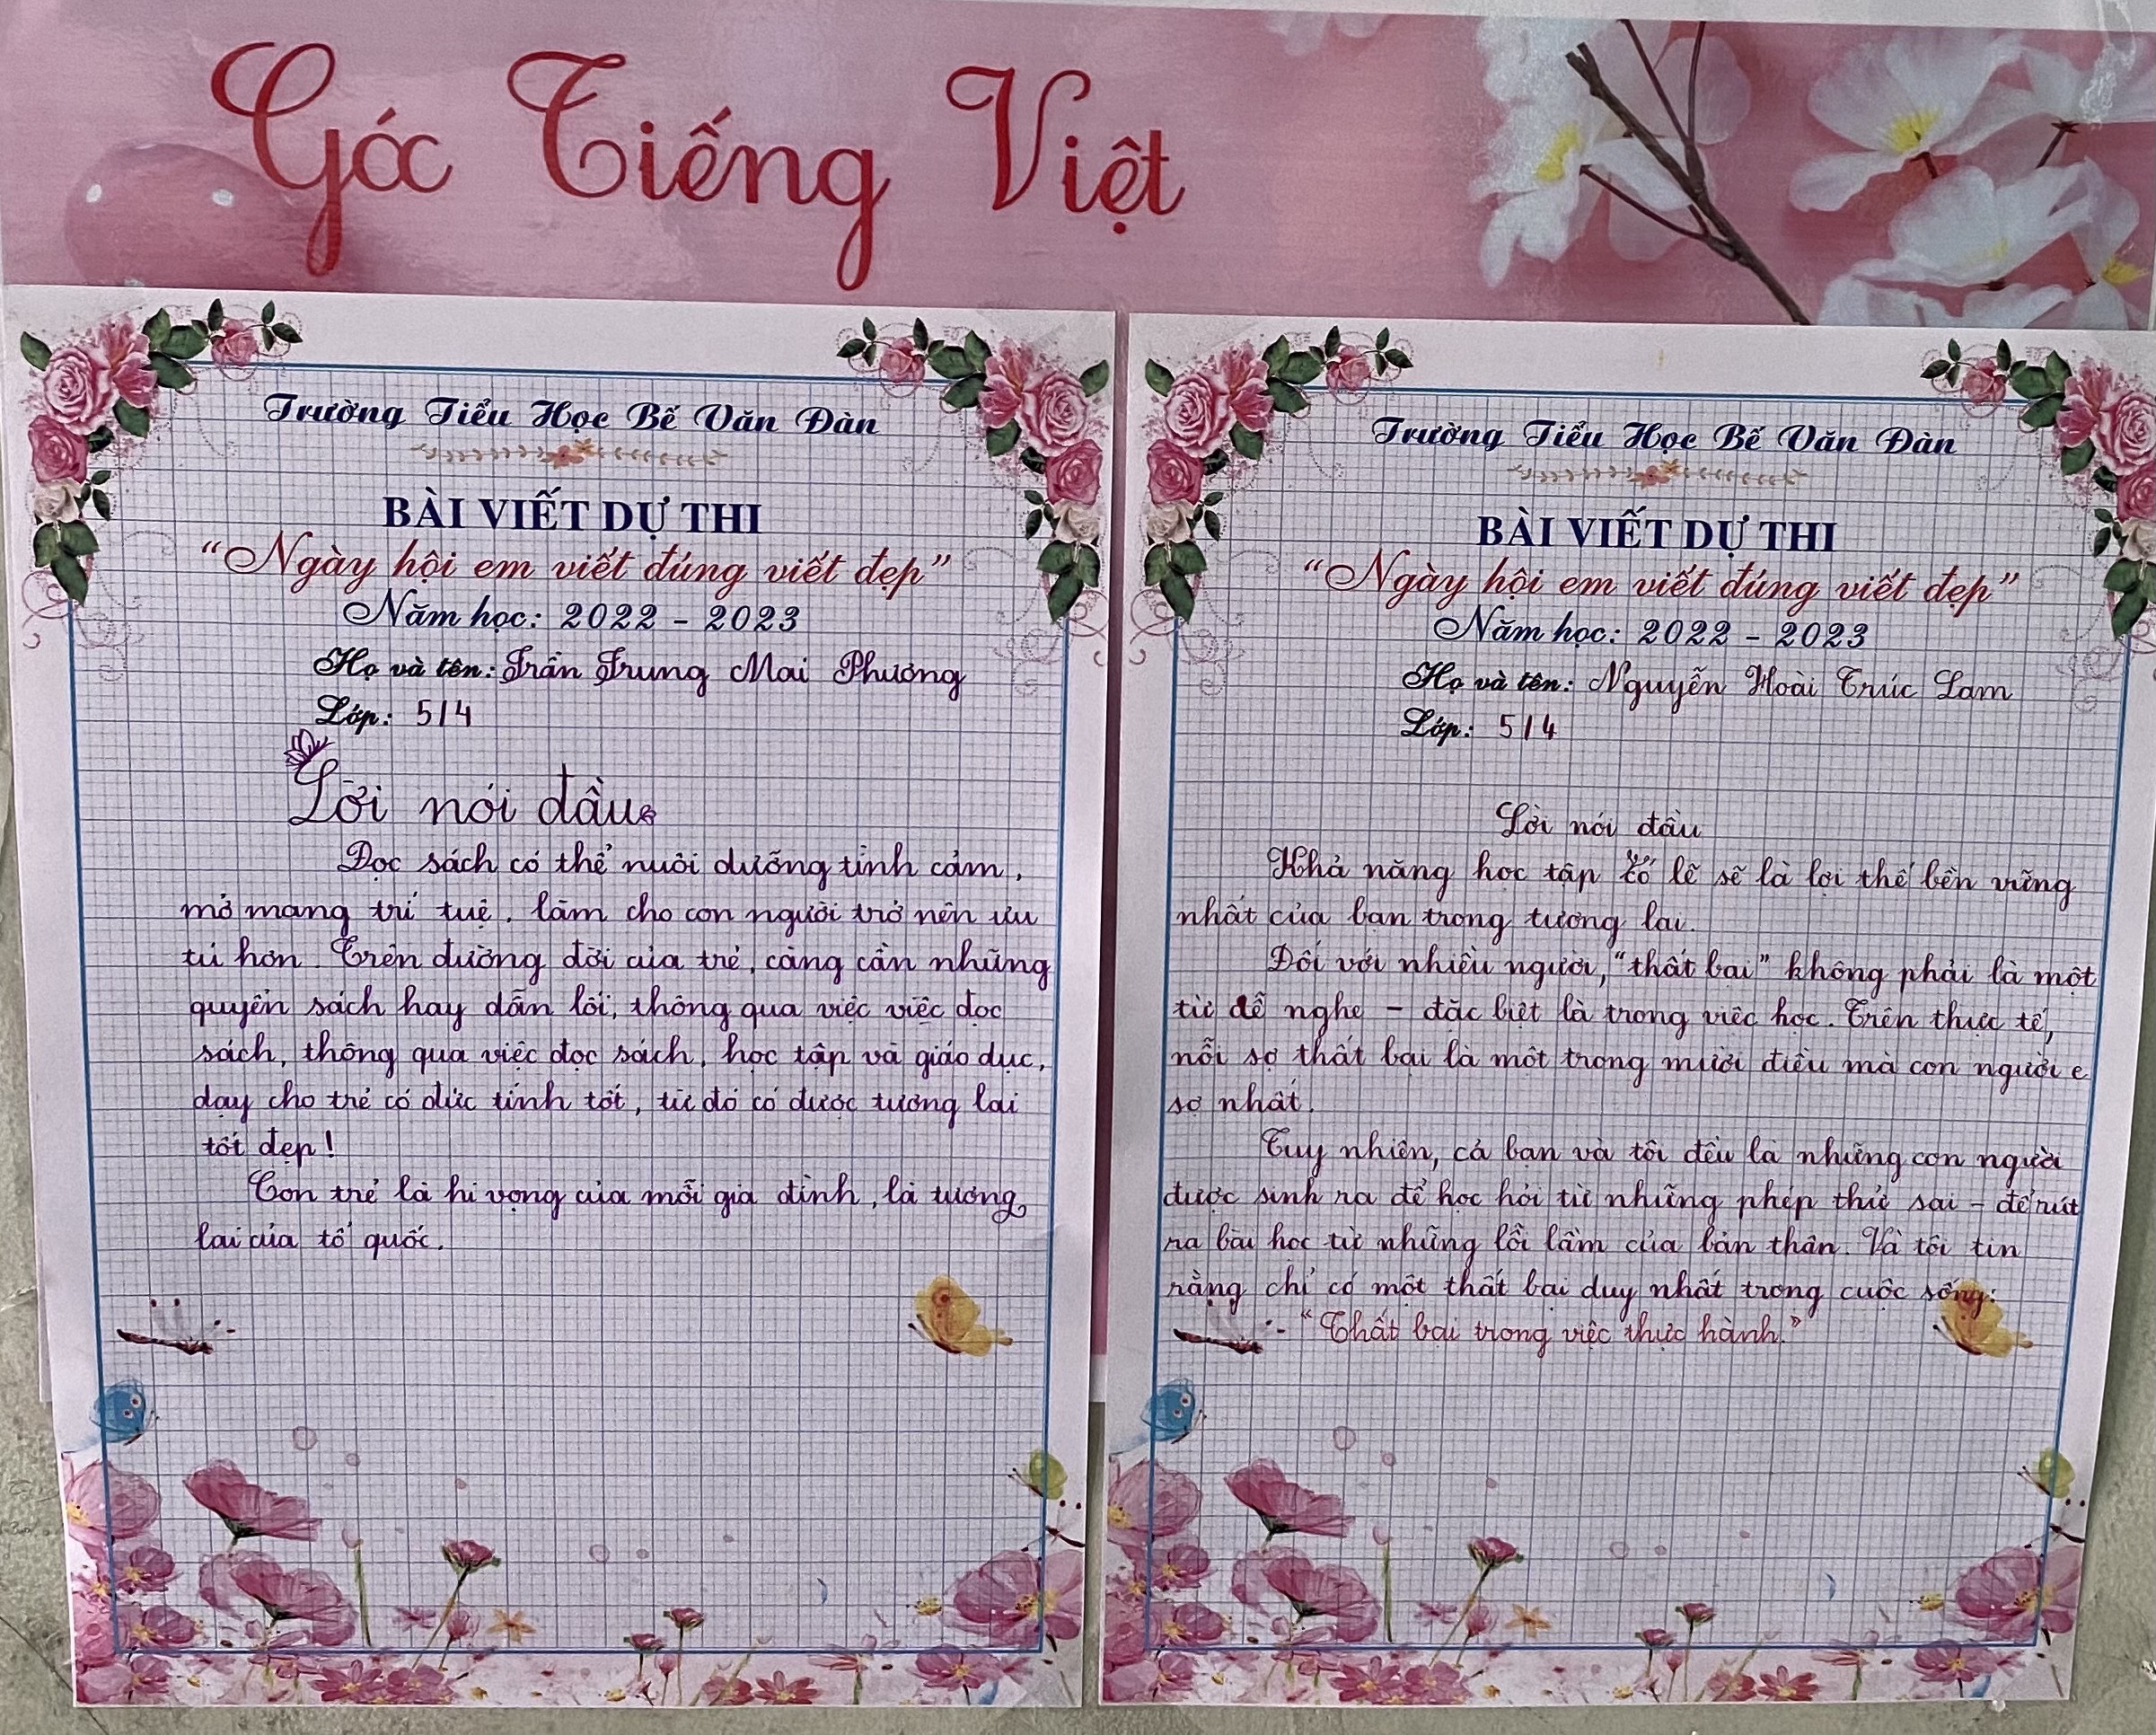 Góc Tiếng Việt
Trường Tiểu Học Bế Văn Đàn
BÀI VIẾT DỰ THI
"Ngày hội em viết đúng viết đẹp"
Năm học: 2022 - 2023
Họ và tên: Trần Trung Mai Phương
Lớp: 5/4
Lời nói đầu
Đọc sách có thể nuôi dưỡng tình cảm,
mở mang trí tuệ, làm cho con người trở nên ưu
tú hơn. Trên đường đời của trẻ, càng cần những
quyển sách hay dẫn lối, thông qua việc việc đọc
sách, thông qua việc đọc sách, học tập và giáo dục,
dạy cho trẻ có đức tính tốt, từ đó có được tương lai
tốt đẹp!
Con trẻ là hi vọng của mỗi gia đình, là tương
lai của tổ quốc.
Trường Tiểu Học Bế Văn Đàn
BÀI VIẾT DỰ THI
"Ngày hội em viết đúng viết đẹp"
Năm học: 2022 - 2023
Họ và tên: Nguyễn Hoài Trúc Lam
Lớp: 5/4
Lời nói đầu
Khả năng học tập có lẽ sẽ là lợi thế bền vững
nhất của bạn trong tương lai.
Đối với nhiều người, "thất bại" không phải là một
từ dễ nghe - đặc biệt là trong việc học. Trên thực tế,
nỗi sợ thất bại là một trong mười điều mà con người e
sợ nhất.
Tuy nhiên, cả bạn và tôi đều là những con người
được sinh ra để học hỏi từ những phép thử sai - để rút
ra bài học từ những lỗi lầm của bản thân. Và tôi tin
rằng chỉ có một thất bại duy nhất trong cuộc sống:
"Thất bại trong việc thực hành."